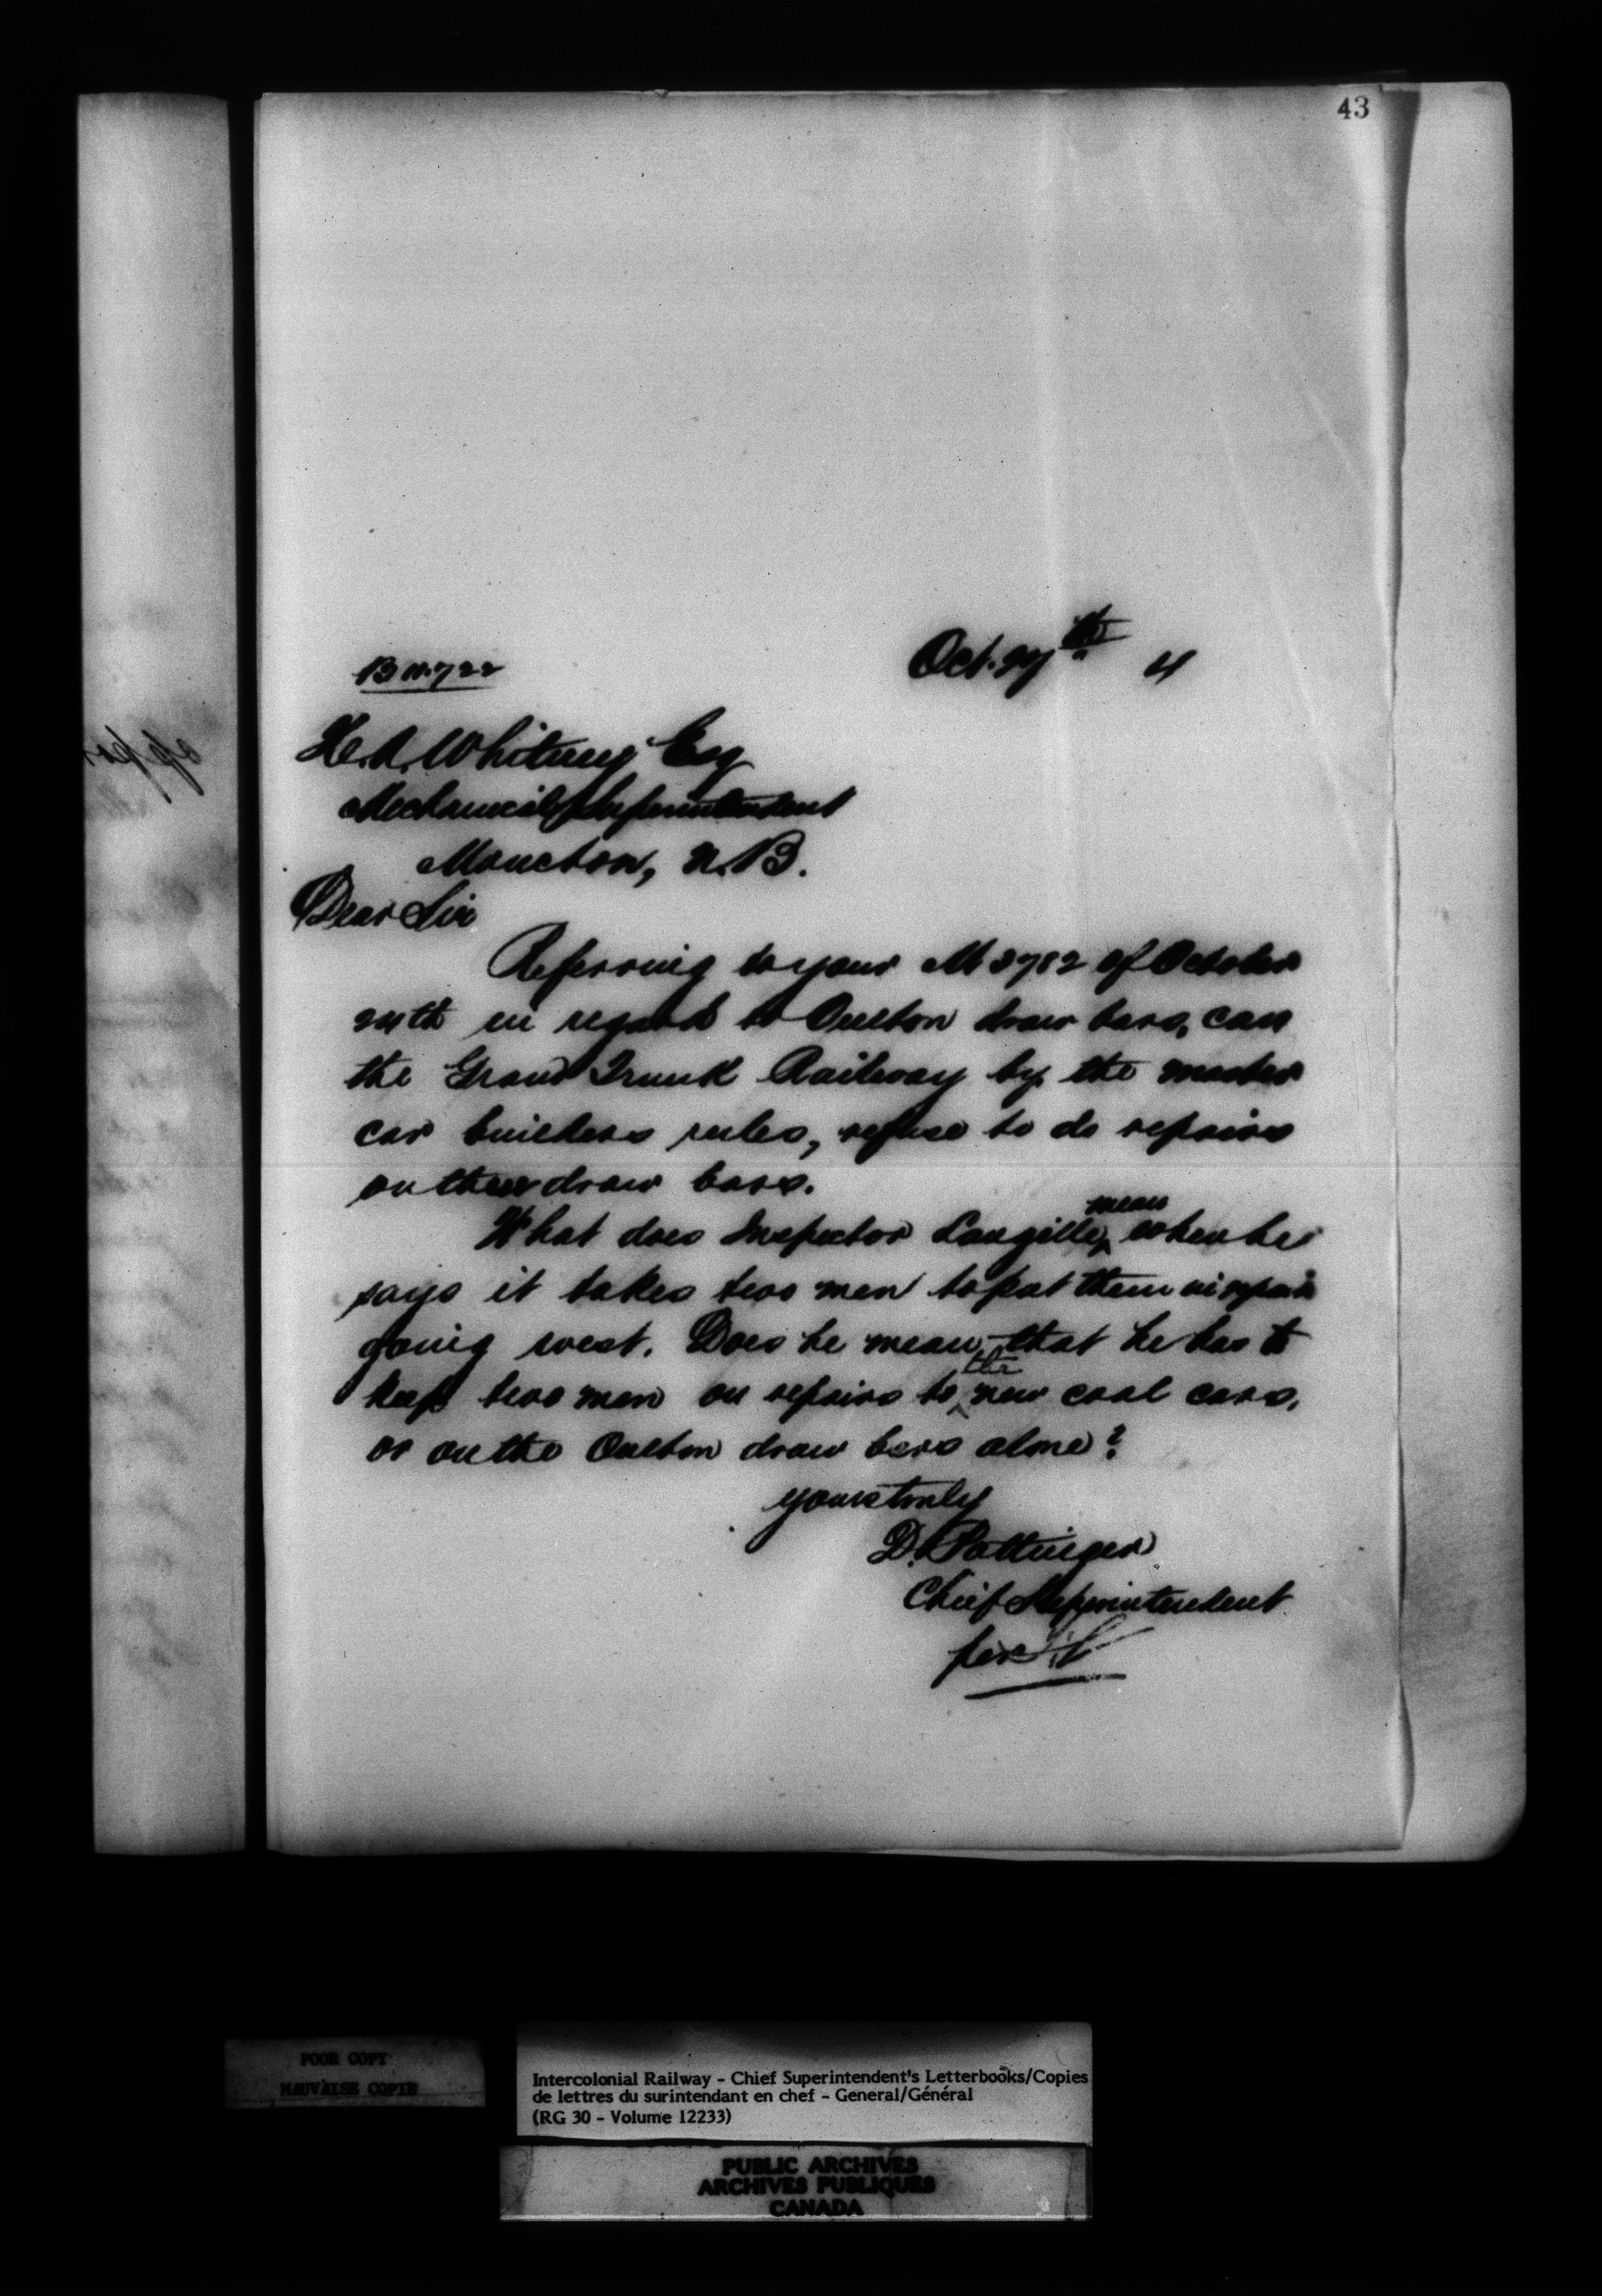 43
Oct. 27th 4
B 11.722
H. A. Whitney Esq
Mechanical Superintendent
Moncton, N.B.
Dear Sir
Referring to your M 3782 of October
24th in regard to Oulton draw bars, can
the Grand Trunk Railway by the master
car builders rules, refuse to do repairs
on these draw bars.
What does Inspector Langille mean when he
says it takes two men to put them in repair
going west. Does he mean that he has to
keep two men on repairs to the new coal cars,
or on the Oulton draw bars alone?
yours truly
D. Pottinger
Chief Superintendent
per
POOR COPY
MAUVAISE COPIE
Intercolonial Railway - Chief Superintendent's Letterbooks/Copies
de lettres du surintendant en chef - General/Général
(RG 30 - Volume 12233)
PUBLIC ARCHIVES
ARCHIVES PUBLIQUES
CANADA